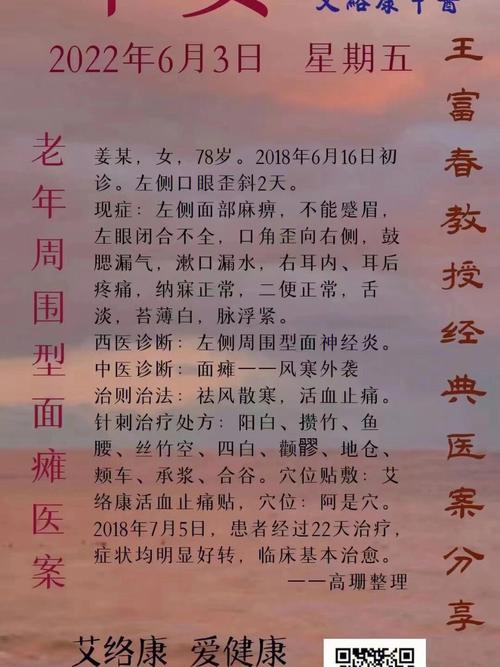 艾络康中医
2022年6月3日 星期五
王富春教授经典医案分享
老年周围型面瘫医案
姜某，女，78岁。2018年6月16日初
诊。左侧口眼歪斜2天。
现症：左侧面部麻痹，不能蹙眉，
左眼闭合不全，口角歪向右侧，鼓
腮漏气，漱口漏水，右耳内、耳后
疼痛，纳寐正常，二便正常，舌
淡，苔薄白，脉浮紧。
西医诊断：左侧周围型面神经炎。
中医诊断：面瘫——风寒外袭
治则治法：祛风散寒，活血止痛。
针刺治疗处方：阳白、攒竹、鱼
腰、丝竹空、四白、颧髎、地仓、
颊车、承浆、合谷。穴位贴敷：艾
络康活血止痛贴，穴位：阿是穴。
2018年7月5日，患者经过22天治疗，
症状均明显好转，临床基本治愈。
——高珊整理
艾络康 爱健康